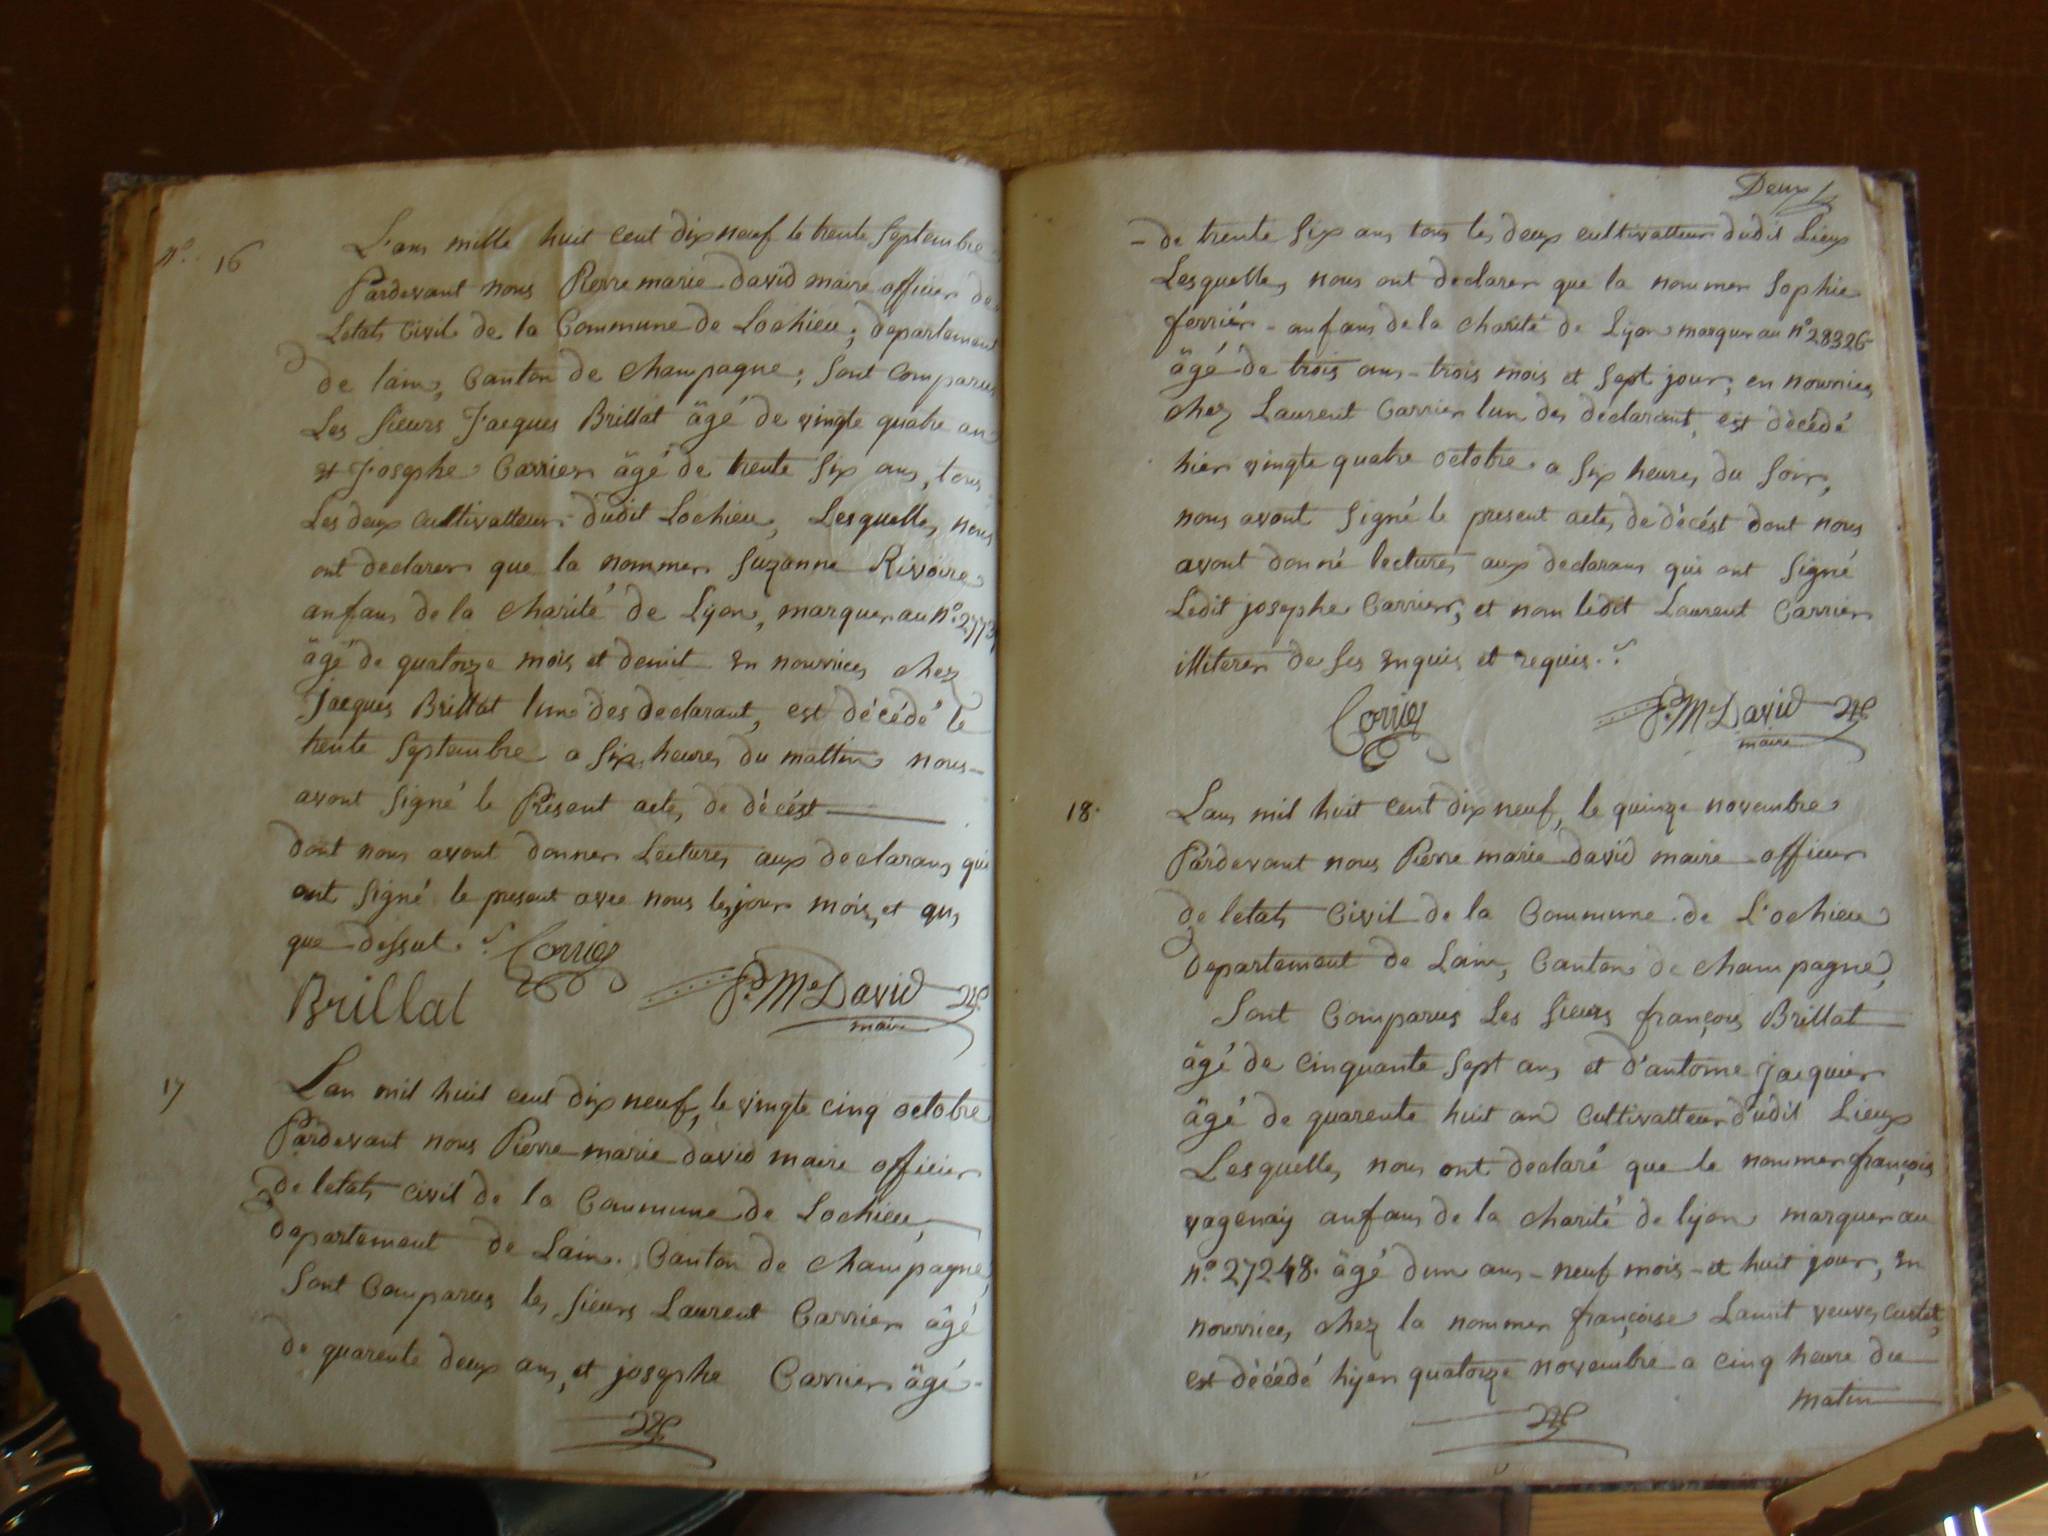 n.º 16
L'ans mille huit cent dix neuf le trente Septembre
Pardevant nous Pierre marie david maire officier de
Letats Civil de la Commune de Lochieu, departement
de lain, Canton de champagne, Sont Comparus
Les Sieurs Jacques Brillat âgé de vingte quatre an
et Josephe Carrier âgé de trente Six ans, tous
Les deux Cultivatteur dudit Lochieu, Lesquelles nous
ont declarer que la nommer Suzanne Rivoire
anfans de la charité de Lyon, marquer au nº
âgé de quatorze mois et demit en nourrices chez
Jacques Brillat lune des declarant, est décédé le
trente Septembre a Six heures du mattin nous
avont Signé le Présent acte de décést
dont nous avont donner Lectures aux declarans qui
ont Signé le present avec nous les jour mois et an,
que dessut.
Corrier
Brillat P. Me David
maire
17
Lan mil huit cent dix neuf, le vingte cinq octobre
Pardevant nous Pierre marie david maire officier
de letats civil de la Commune de Lochieu,
departement de Lain. Canton de champagne,
Sont Comparus les Sieurs Laurent Carrier âgé
de quarente deux ans, et josephe Carrier âgé
Deux
de trente Six ans tous les deux cultivatteur dudit Lieux
Lesquelles nous ont declarer que la nommer Sophie
ferrier anfans de la charité de Lyon marquer au nº 28326
âgé de trois ans trois mois et Sept jour, en nourrices
chez Laurent Carrier lun des declarant, est décédé
hier vingte quatre octobre a Six heures du Soir,
nous avont Signé le present acte, de décést dont nous
avont donné lectures aux declarans qui ont Signé
Ledit josephe Carrier, et nom ledit Laurent Carrier
illiterer de ses enquis et requis.
Corrier P. Me David
maire
18.
Lans mil huit cent dix neuf, le quinze novembre
Pardevant nous Pierre marie david maire officier
de letats Civil de la Commune de L'ochieu
Departement de Lain, Canton de champagne,
Sont Comparus Les Sieurs françois Brillat
âgé de cinquante Sept ans et d'antoine Jacquier
âgé de quarente huit an Cultivatteur dudit Lieux
Lesquelles nous ont declaré que le nommer françois
vagenay anfans de la charité de lyon marquer au
nº 27248. âgé dun ans neuf mois et huit jour, en
nourrices chez la nommer françoise veuve
est décédé hyer quatorze novembre a cinq heure du
matin